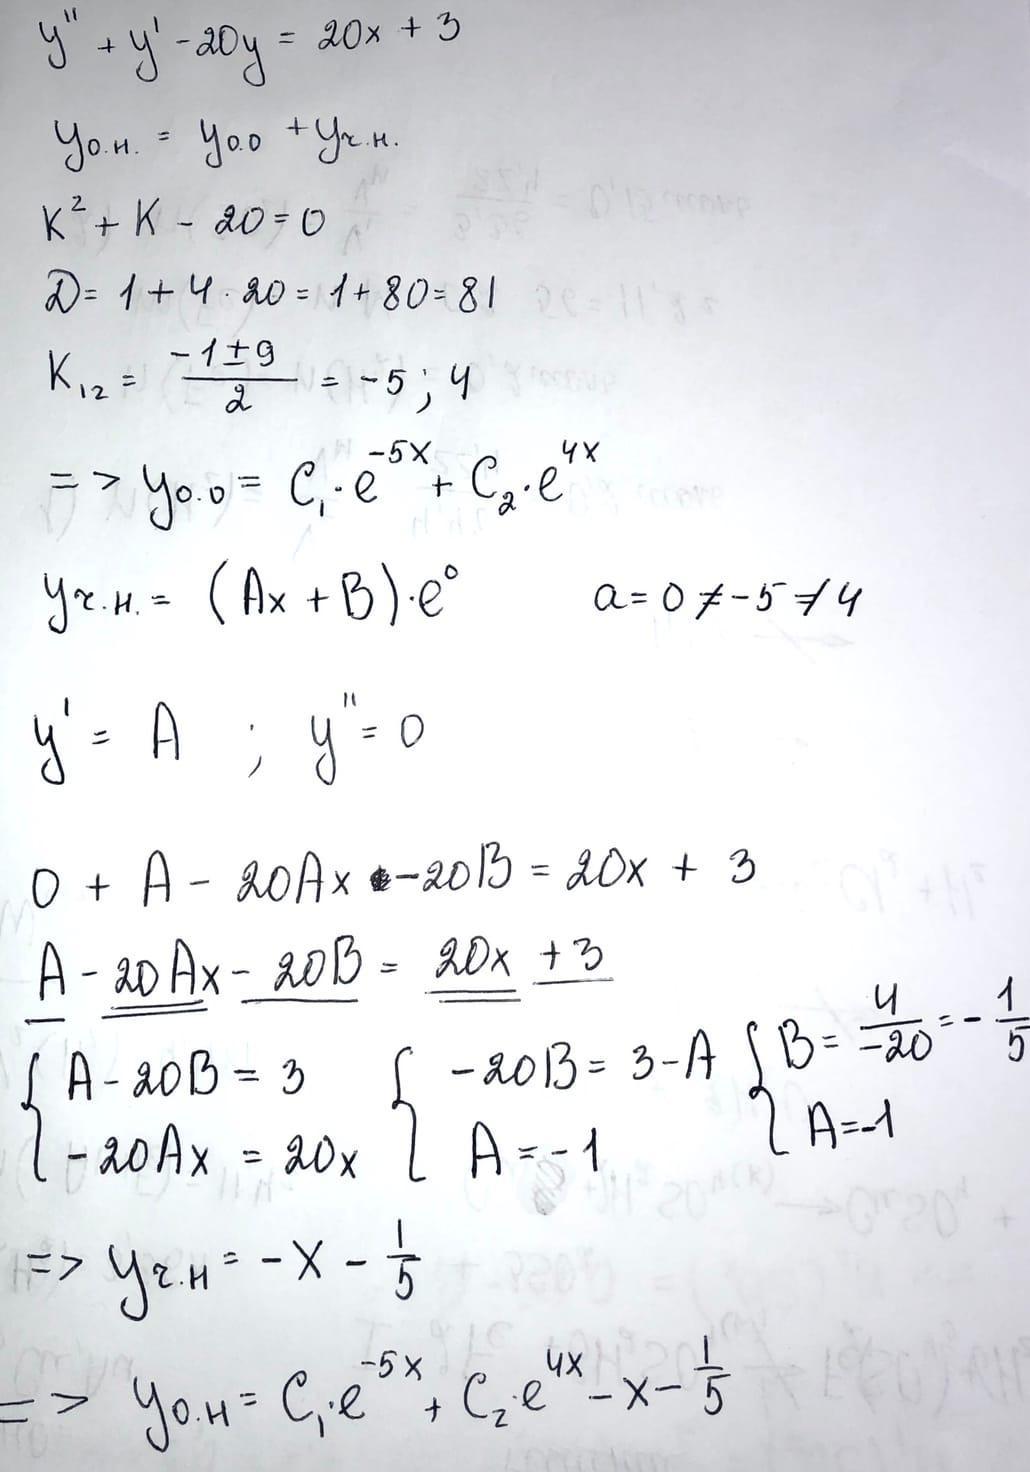 y'' + y' - 20y = 20x + 3
yо.н. = yо.о + yч.н.
K² + K - 20 = 0
D = 1 + 4 · 20 = 1 + 80 = 81
K₁₂ = (-1 ± 9)/2 = -5 ; 4
=> yо.о = C₁·e^(-5x) + C₂·e^(4x)
yч.н. = (Ax + B)·e⁰ a = 0 ≠ -5 ≠ 4
y' = A ; y'' = 0
0 + A - 20Ax - 20B = 20x + 3
A - 20Ax - 20B = 20x + 3
{ A - 20B = 3 { -20B = 3 - A { B = 4/-20 = -1/5
-20Ax = 20x A = -1 A = -1
=> yч.н = -x - 1/5
=> yо.н = C₁·e^(-5x) + C₂·e^(4x) - x - 1/5